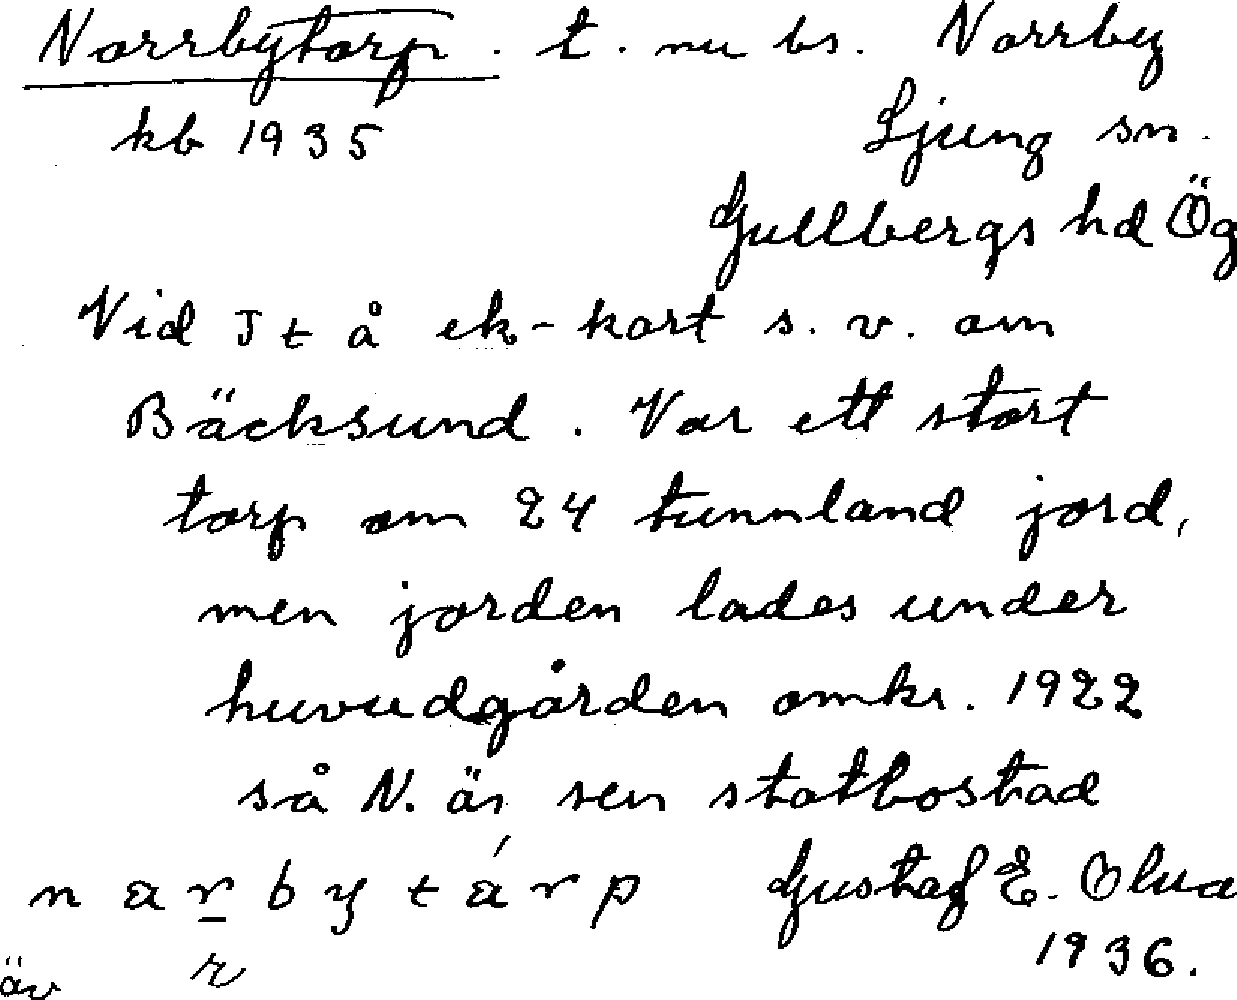 Norrbytorp. t. nu bs. Norrby
kb 1935 Ljung sn.
Gullbergs hd Ög
Vid J t å ek-kart s. v. om
Bäcksund. Var ett stort
torp om 24 tunnland jord,
men jorden lades under
huvudgården omkr. 1922
så N. är sen statbostad
n a r b y t á r p Gustaf E. Olua
äv r 1936.